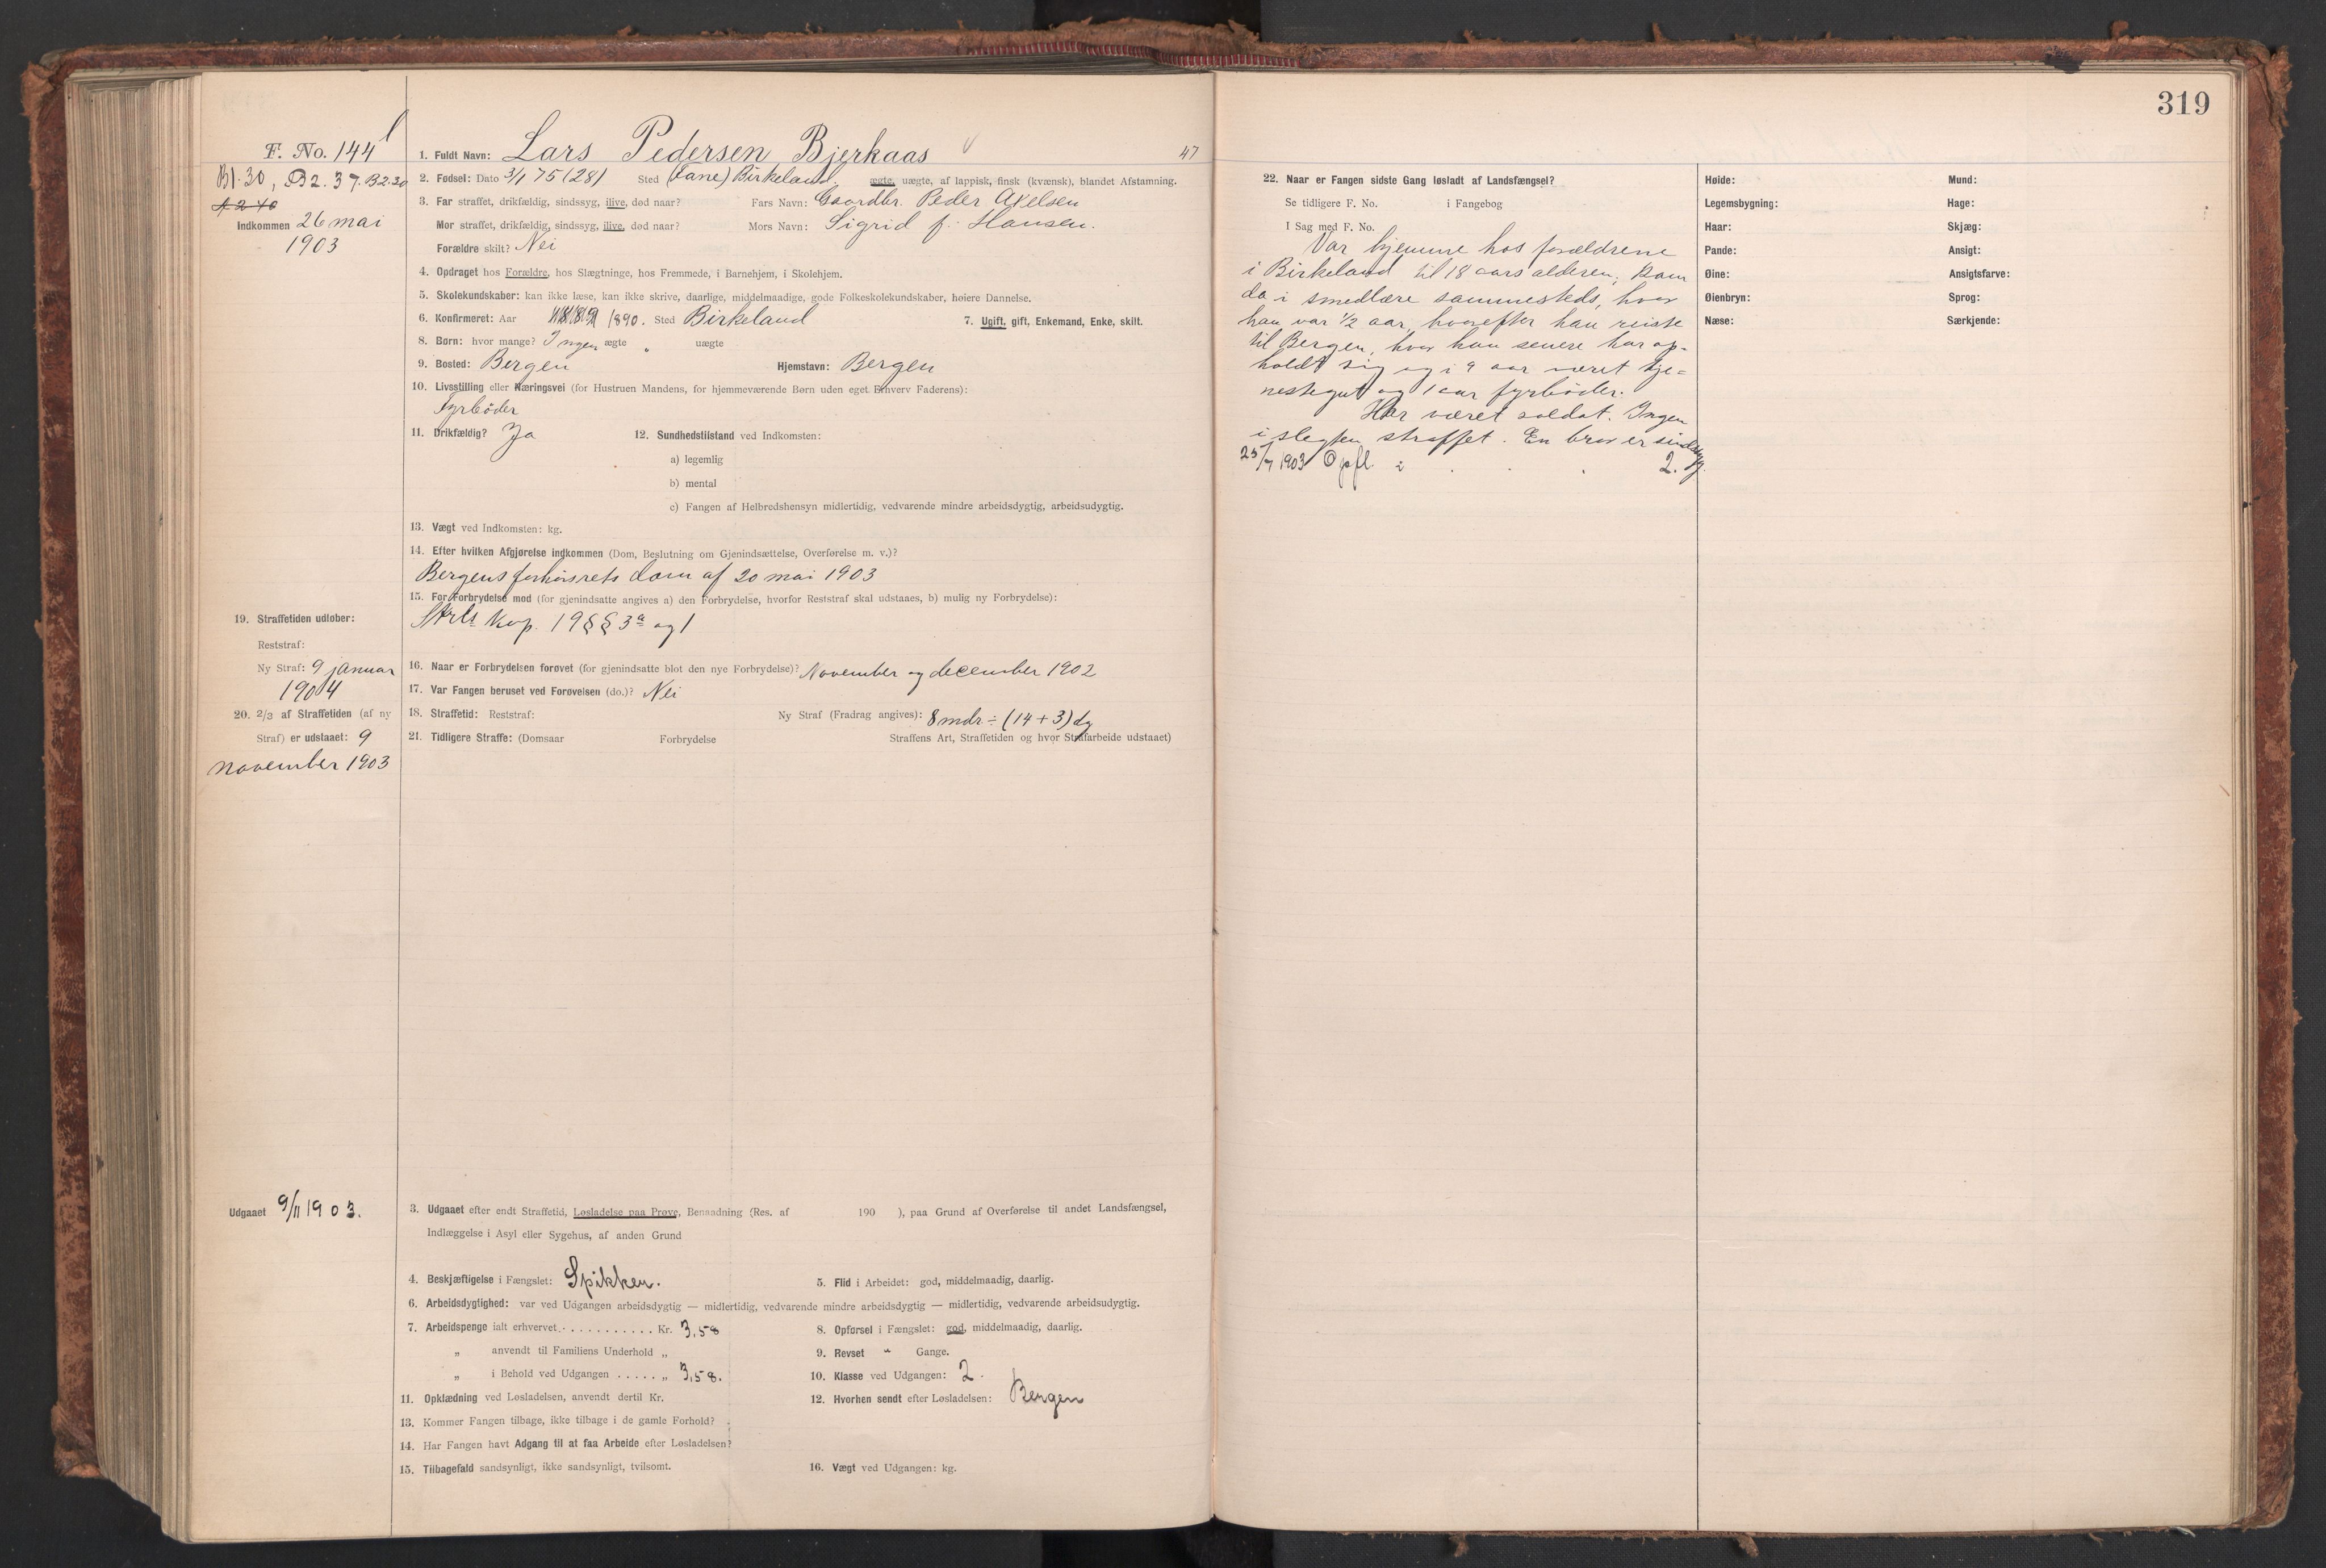 319
F. No. 144
B1.30, B2.37. B2.30
A 2 40
Indkommen 26 mai
1903
1. Fuldt Navn: Lars Pedersen Bjerkaas 47
2. Fødsel: Dato 3/1 75 (28) Sted (Fane) Birkeland ægte, uægte, af lappisk, finsk (kvænsk), blandet Afstamning.
3. Far straffet, drikfældig, sindssyg, ilive, død naar? Fars Navn: Gaardbr. Peder Axelsen
Mor straffet, drikfældig, sindssyg, ilive, død naar? Mors Navn: Sigrid f. Hansen.
Forældre skilt? Nei
4. Opdraget hos Forældre, hos Slægtninge, hos Fremmede, i Barnehjem, i Skolehjem.
5. Skolekundskaber: kan ikke læse, kan ikke skrive, daarlige, middelmaadige, gode Folkeskolekundskaber, høiere Dannelse.
6. Konfirmeret: Aar 1890. Sted Birkeland 7. Ugift, gift, Enkemand, Enke, skilt.
8. Børn: hvor mange? Ingen ægte „ uægte
9. Bosted: Bergen Hjemstavn: Bergen
10. Livsstilling eller Næringsvei (for Hustruen Mandens, for hjemmeværende Børn uden eget Erhverv Faderens):
Fyrbøder
11. Drikfældig? Ja 12. Sundhedstilstand ved Indkomsten:
a) legemlig
b) mental
c) Fangen af Helbredshensyn midlertidig, vedvarende mindre arbeidsdygtig, arbeidsudygtig.
13. Vægt ved Indkomsten: kg.
14. Efter hvilken Afgjørelse indkommen (Dom, Beslutning om Gjenindsættelse, Overførelse m. v.)?
Bergens forhørsrets dom af 20 mai 1903
15. For Forbrydelse mod (for gjenindsatte angives a) den Forbrydelse, hvorfor Reststraf skal udstaaes, b) mulig ny Forbrydelse):
Strls Kap. 19 §§ 3a og 1
16. Naar er Forbrydelsen forøvet (for gjenindsatte blot den nye Forbrydelse)? November og december 1902
17. Var Fangen beruset ved Forøvelsen (do.)? Nei
18. Straffetid: Reststraf: Ny Straf (Fradrag angives): 8 mdr ÷ (14 + 3) dg
19. Straffetiden udløber:
Reststraf:
Ny Straf: 9 januar
1904
20. 2/3 af Straffetiden (af ny
Straf) er udstaaet: 9
november 1903
21. Tidligere Straffe: (Domsaar Forbrydelse Straffens Art, Straffetiden og hvor Strafarbeide udstaaet)
Udgaaet 9/11 1903.
3. Udgaaet efter endt Straffetid, Løsladelse paa Prøve, Benaadning (Res. af 190 ), paa Grund af Overførelse til andet Landsfængsel,
Indlæggelse i Asyl eller Sygehus, af anden Grund
4. Beskjæftigelse i Fængslet: Spikker. 5. Flid i Arbeidet: god, middelmaadig, daarlig.
6. Arbeidsdygtighed: var ved Udgangen arbeidsdygtig — midlertidig, vedvarende mindre arbeidsdygtig — midlertidig, vedvarende arbeidsudygtig.
7. Arbeidspenge ialt erhvervet . . . . . . . . . . . Kr. 3,58 8. Opførsel i Fængslet: god, middelmaadig, daarlig.
„ anvendt til Familiens Underhold „ 9. Revset „ Gange.
„ i Behold ved Udgangen . . . . . „ 3,58. 10. Klasse ved Udgangen: 2.
11. Opklædning ved Løsladelsen, anvendt dertil Kr. 12. Hvorhen sendt efter Løsladelsen: Bergen
13. Kommer Fangen tilbage, ikke tilbage i de gamle Forhold?
14. Har Fangen havt Adgang til at faa Arbeide efter Løsladelsen?
15. Tilbagefald sandsynligt, ikke sandsynligt, tvilsomt. 16. Vægt ved Udgangen: kg.
22. Naar er Fangen sidste Gang løsladt af Landsfængsel?
Se tidligere F. No. i Fangebog
I Sag med F. No.
Var hjemme hos forældrene
i Birkeland til 18 aars alderen; kom
da i smedlære sammesteds, hvor
han var 1/2 aar, hvorefter han reiste
til Bergen, hvor han senere har op-
holdt sig og i 9 aar været tje=
nestegut og 1 aar fyrbøder.
Har været soldat. Ingen
i slegten straffet. En bror er sindssyg.
25/7 1903 Opfl. i . . . 2.
Høide: Mund:
Legemsbygning: Hage:
Haar: Skjæg:
Pande: Ansigt:
Øine: Ansigtsfarve:
Øienbryn: Sprog:
Næse: Særkjende: